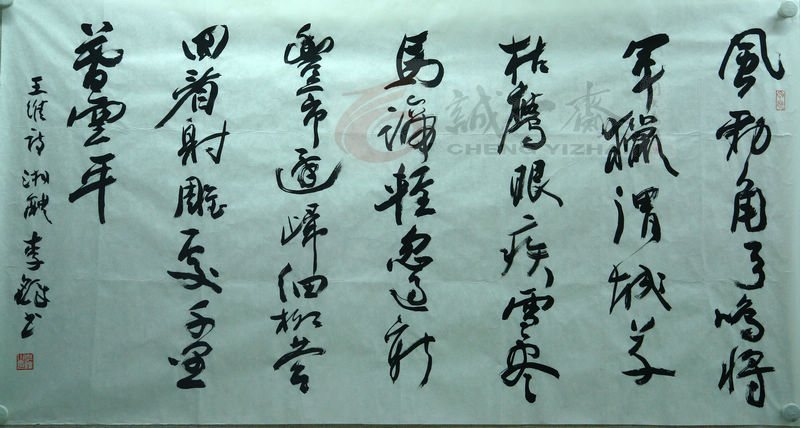 風勁角弓鳴將
軍獵渭城草
枯鷹眼疾雪盡
馬蹄輕忽過新
豐市還歸細柳營
回看射雕處千里
暮雲平
王維詩 湘醴 李鐸書
誠一齋
CHENG YIZH